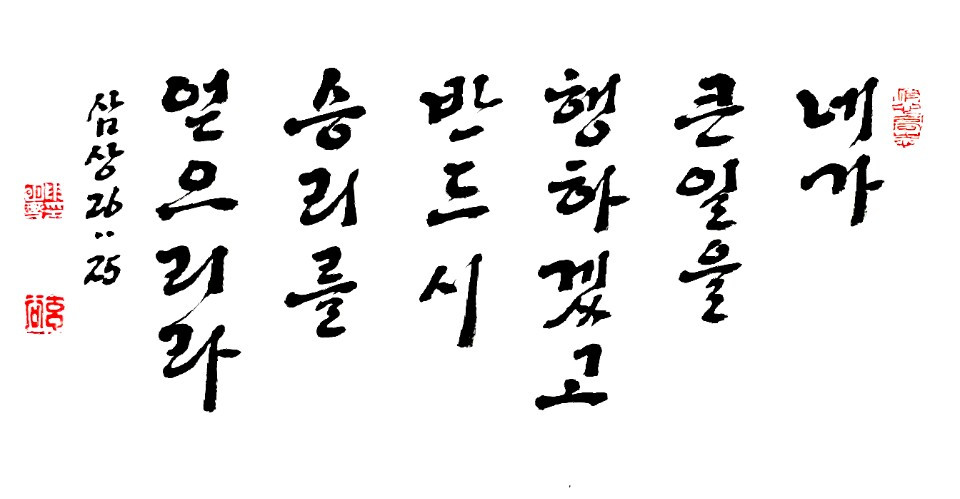 네가
큰일을
행하겠고
반드시
승리를
얻으리라
삼상26:25